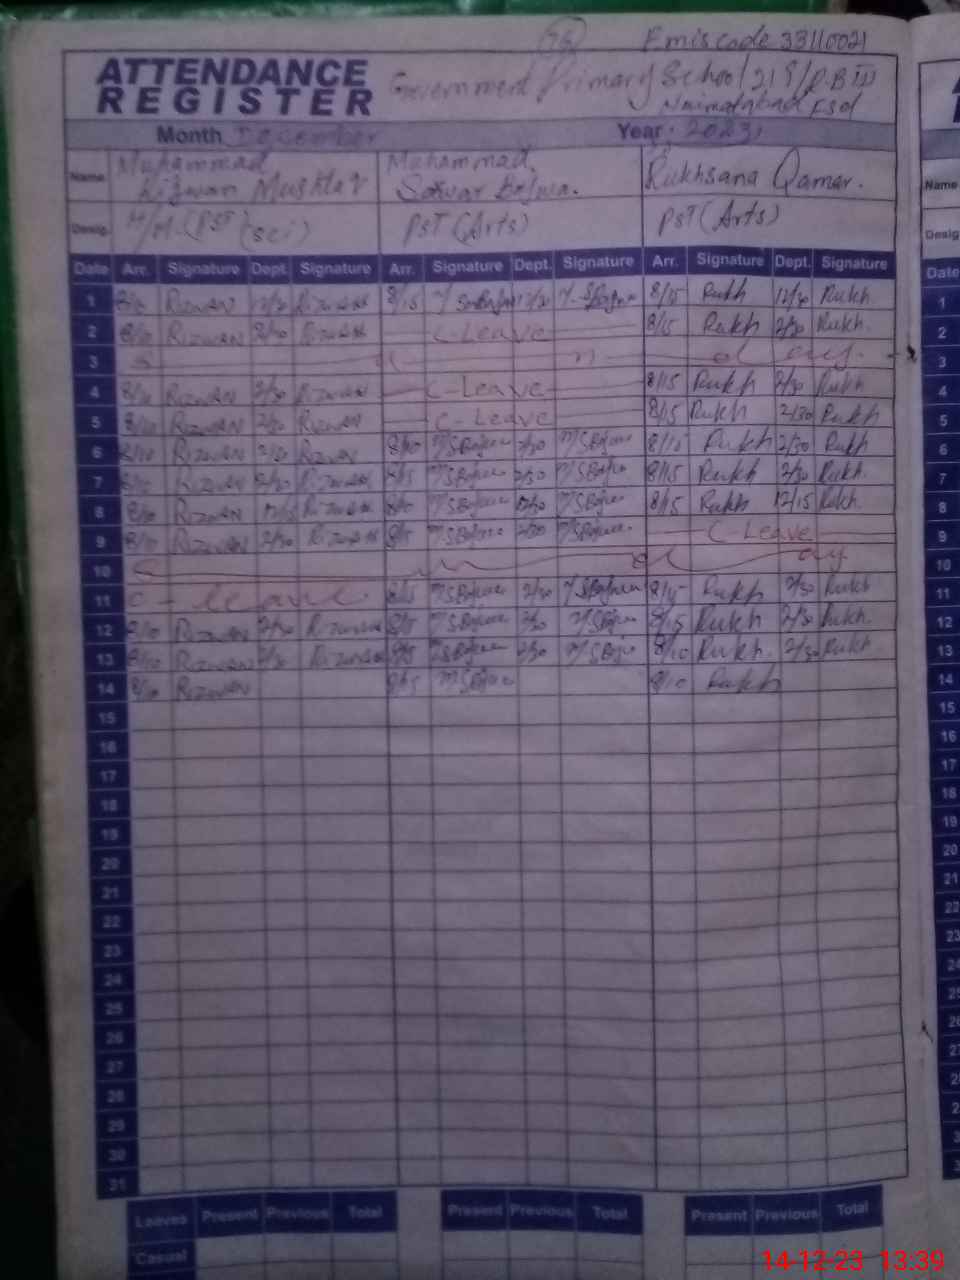 Emis code 33110021
ATTENDANCE
REGISTER
Government Primary School 219/R.B III
Fsd
Month December Year 2023
Name Muhammad Rizwan Mushtaq Muhammad Sarwar Bajwa. Rukhsana Qamer.
Desig. H/M.(PST)(sci) PST (Arts) PST (Arts)
Date Arr. Signature Dept. Signature Arr. Signature Dept. Signature Arr. Signature Dept. Signature
1 8/10 RIZWAN 12/30 RIZWAN 8/15 M.SBajwa 12/30 M.SBajwa 8/15 Rukh 12/30 Rukh.
2 8/10 RIZWAN 2/30 RIZWAN C-Leave 8/15 Rukh 2/30 Rukh.
3 S u n d ay.
4 8/10 RIZWAN 2/30 RIZWAN C-Leave 8/15 Rukh 2/30 Rukh
5 8/10 RIZWAN 2/30 RIZWAN C-Leave 8/15 Rukh 2/30 Rukh
6 8/10 RIZWAN 2/30 RIZWAN 8/10 MSBajwa 2/30 MSBajwa 8/15 Rukh 2/30 Rukh
7 8/10 RIZWAN 2/30 RIZWAN 8/15 MSBajwa 2/30 MSBajwa 8/15 Rukh 2/30 Rukh
8 8/10 RIZWAN 12/15 RIZWAN 8/10 MSBajwa MSBajwa 8/15 Rukh 12/15 Rukh.
9 8/10 RIZWAN 2/30 RIZWAN 8/15 MSBajwa 2/30 MSBajwa. C-Leave
10 S un d ay
11 C-leave. 8/15 MSBajwa 2/30 MSBajwa 8/15 Rukh 2/30 Rukh
12 8/10 RIZWAN 2/30 RIZWAN 8/15 MSBajwa 2/30 MSBajwa 8/15 Rukh 2/30 Rukh.
13 8/10 RIZWAN 2/30 RIZWAN 8/15 MSBajwa 2/30 MSBajwa 8/10 Rukh. 2/30 Rukh.
14 8/10 RIZWAN 8/15 MSBajwa 8/10 Rukh
15
16
17
18
19
20
21
22
23
24
25
26
27
28
29
30
31
Leaves Present Previous Total Present Previous Total Present Previous Total
Casual
14-12-23 13:39